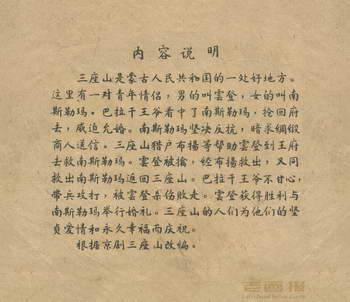 内容说明
三座山是蒙古人民共和国的一处好地方。
这里有一对青年情侣，男的叫雲登，女的叫南
斯勒瑪。巴拉干王爷看中了南斯勒瑪，抢回府
去，威迫允婚。南斯勒瑪坚决反抗，暗求绸缎
商人送信。三座山猎户布揚等帮助雲登到王府
去救南斯勒瑪。雲登被擒，经布揚救出，又同
救出南斯勒瑪返回三座山。巴拉干王爷不甘心，
带兵攻打，被雲登杀伤敗走。雲登获得胜利与
南斯勒瑪举行婚礼。三座山的人们为他们的坚
貞爱情和永久幸福而庆祝。
根据京剧三座山改编。